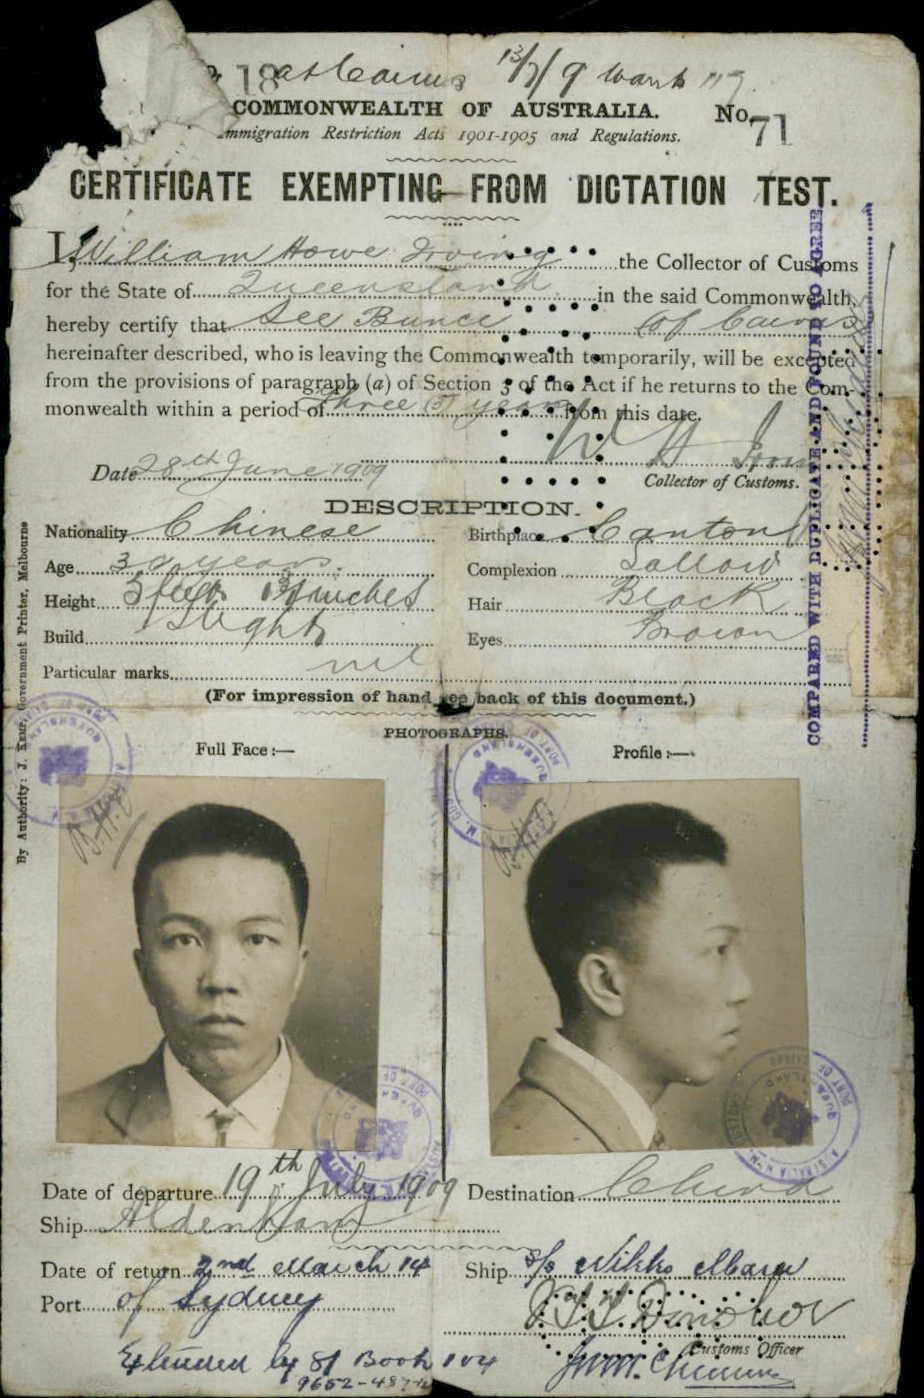 18 at Cairns 13/7/9
COMMONWEALTH OF AUSTRALIA. No. 71
Immigration Restriction Acts 1901-1905 and Regulations.
CERTIFICATE EXEMPTING FROM DICTATION TEST.
I, William Howe Irving the Collector of Customs
for the State of Queensland in the said Commonwealth,
hereby certify that See Bunce (of Cairns)
hereinafter described, who is leaving the Commonwealth temporarily, will be excepted
from the provisions of paragraph (a) of Section 3 of the Act if he returns to the Com-
monwealth within a period of three (3) years from this date.
W H Irving
Date 28th June 1909 Collector of Customs.
DESCRIPTION.
Nationality Chinese Birthplace Canton
Age years. Complexion Sallow
Height 5 feet inches Hair Black
Build Slight Eyes Brown
Particular marks nil
(For impression of hand see back of this document.)
PHOTOGRAPHS.
Full Face:— Profile:—
Date of departure 19th July 1909 Destination China
Ship Aldenham
Date of return 2nd March 14 Ship s/s Nikko Maru
Port of Sydney
Customs Officer
Extended by Book 104
By Authority: J. Kemp, Government Printer, Melbourne
COMPARED WITH DUPLICATE AND FOUND TO AGREE